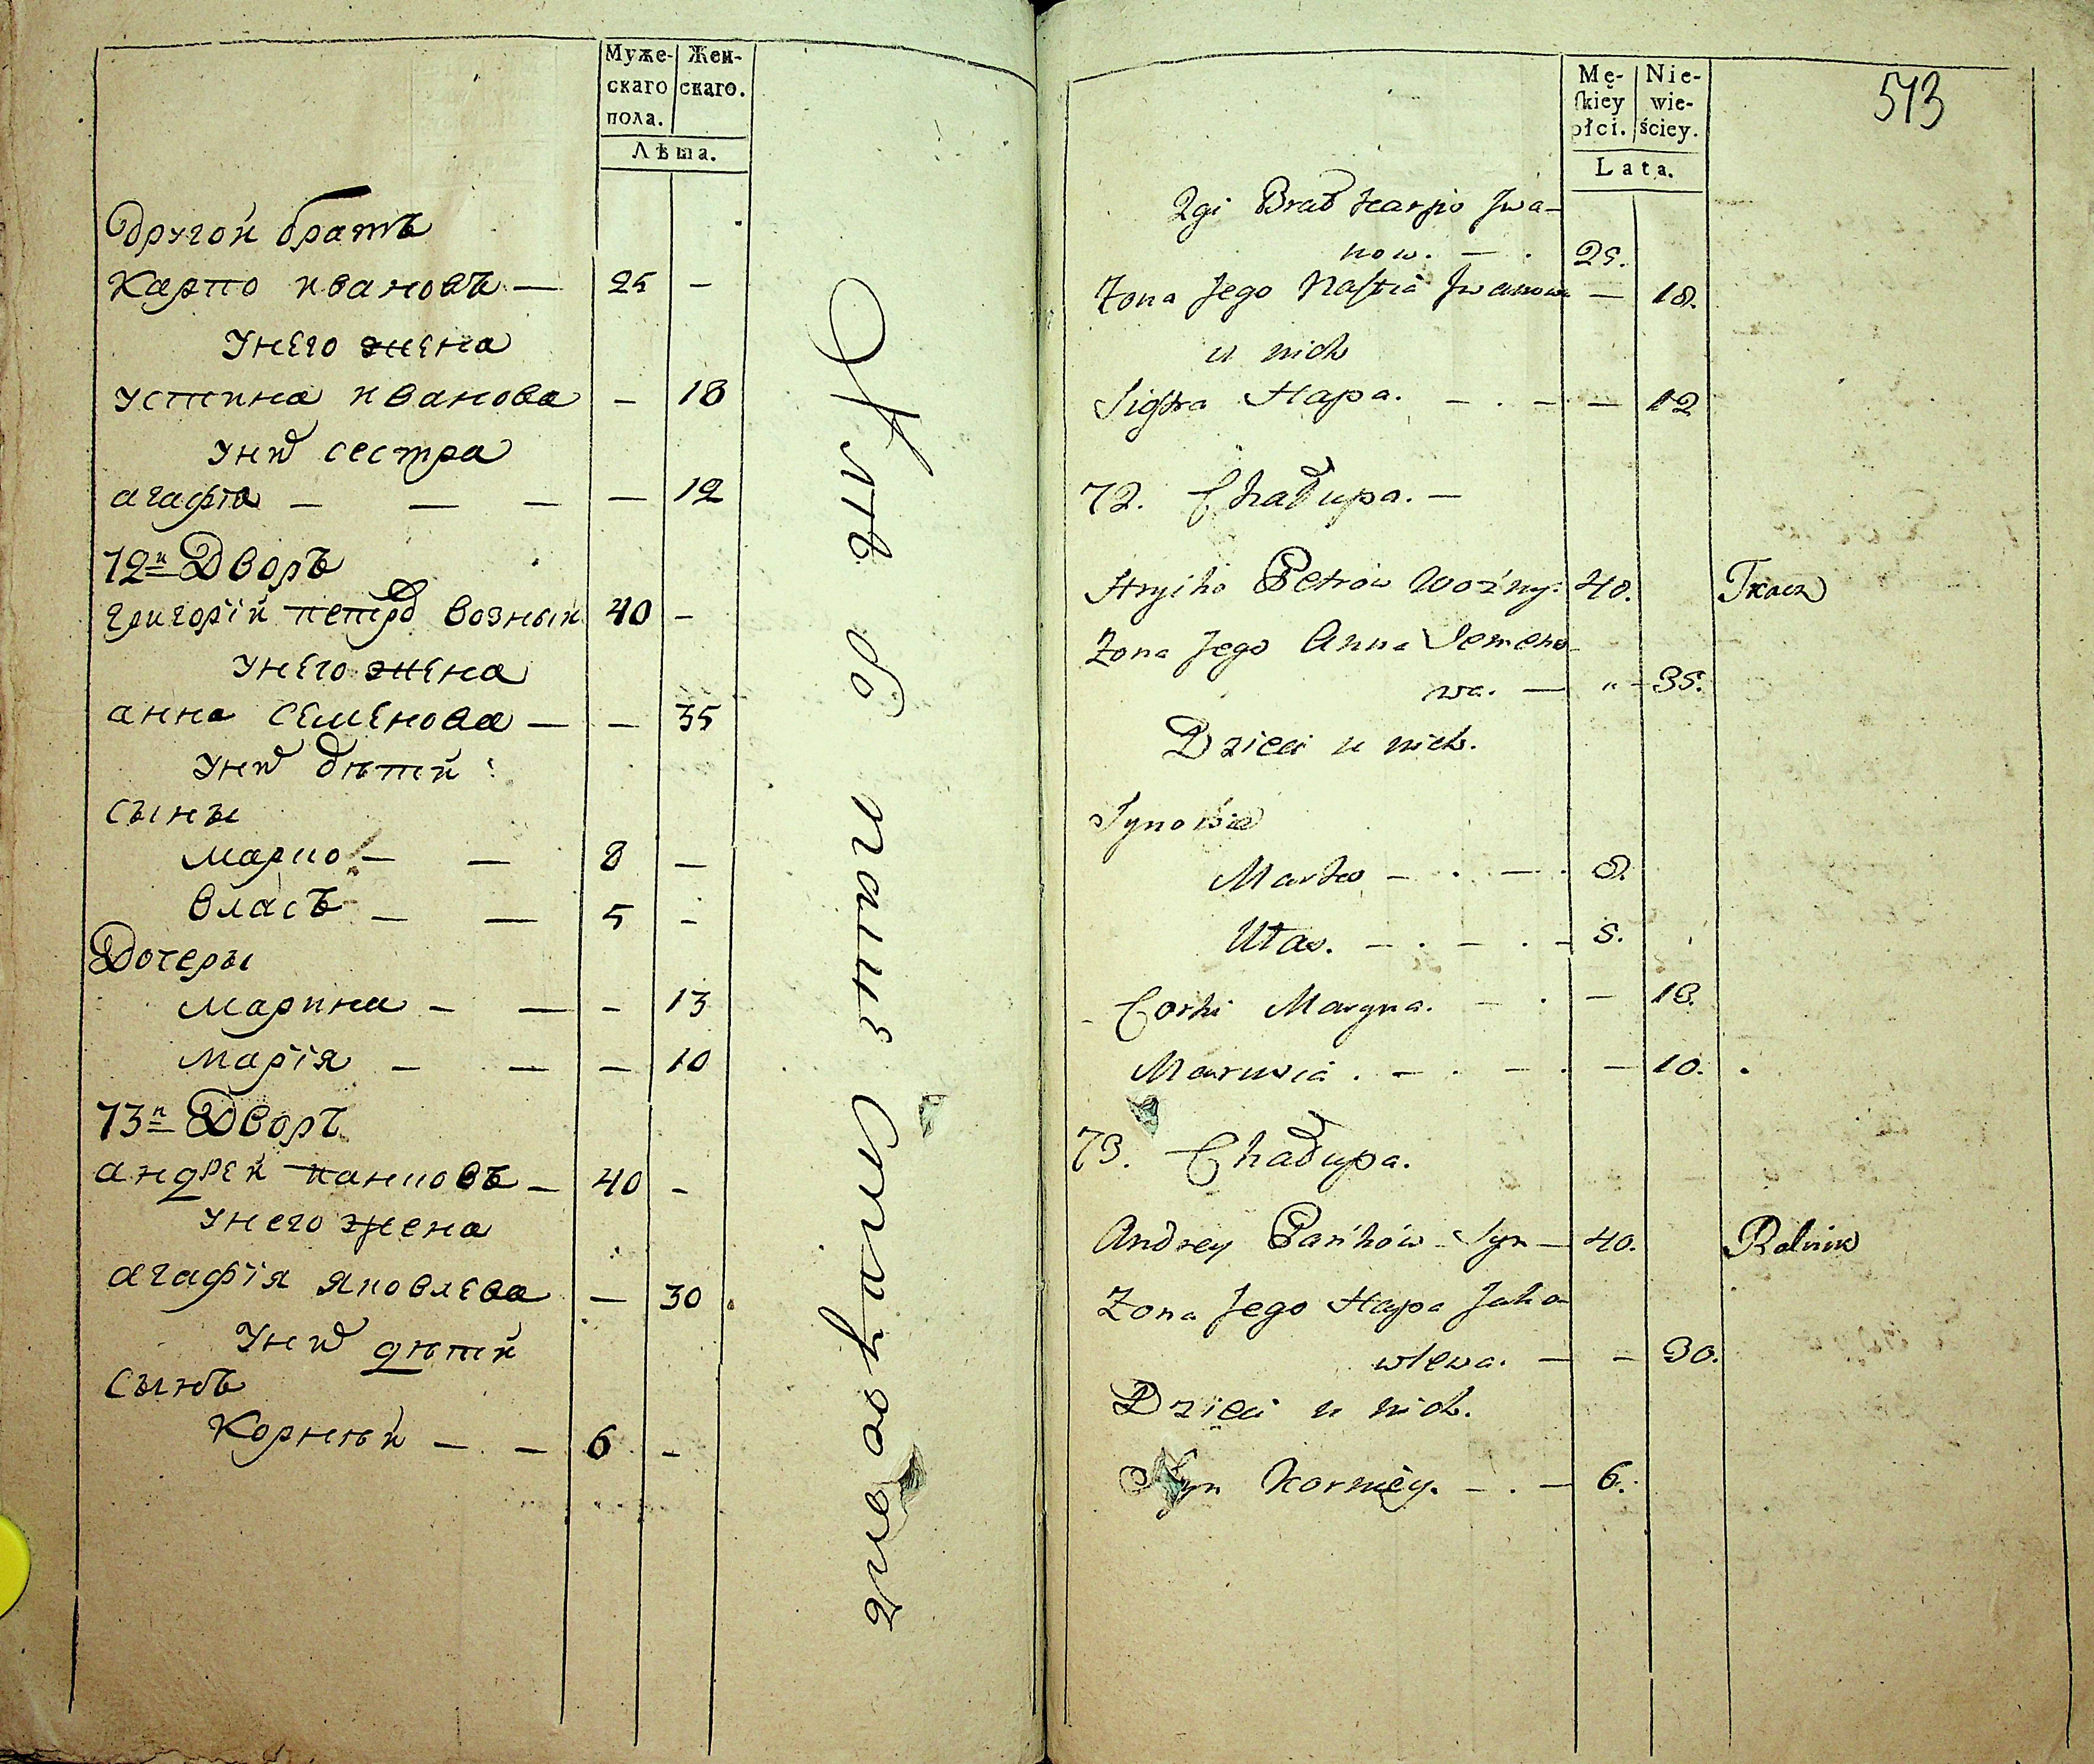 Муже-
скаго
пола.
Жен-
скаго.
Лѣта.
Другой братъ
Карпо Ивановъ — 25 —
У него жена
Устина Иванова — 18
У ни͏х сестра
агафіа — — — — 12
72й Дворъ
Григорій петро͏в возный 40 —
У него жена
анна Семенова — — 35
У ни͏х дѣтй
Сыны
Марко — — 8 —
Власъ — — 5 —
Дочеры
Марина — — — 13
Марія — — — 10
73й Дворъ
андрей панковъ — 40 —
У него жена
агафія яковлева — 30
У ни͏х дѣтй
Сынъ
Корнѣй — — 6 —
Mę-
ſkiey
płci.
Nie-
wie-
ściey.
Lata.
513
2gi Brat Karpo Iwa-
now. — . 25.
Zona Jego Nastia Iwanowa — 18.
u nich
Siostra Hapa. — . — — 12
72. Chałupa. —
Hryćko Petrow Woźny. 40. Tkacz
Zona Jego Anna Semeno-
wa. — " — 35.
Dzieci u nich.
Synowie
Marko — . — . 8.
Ułas. — . — . — 5.
Corki Maryna. — . — 13.
Marusia . — . — . — 10.
73. Chałupa.
Andrey Pańków Syn — 40. Rolnik
Zona Jego Hapa Jako-
wlewa. — — 30.
Dzieci u nich.
Syn Korniey. — . — 6.